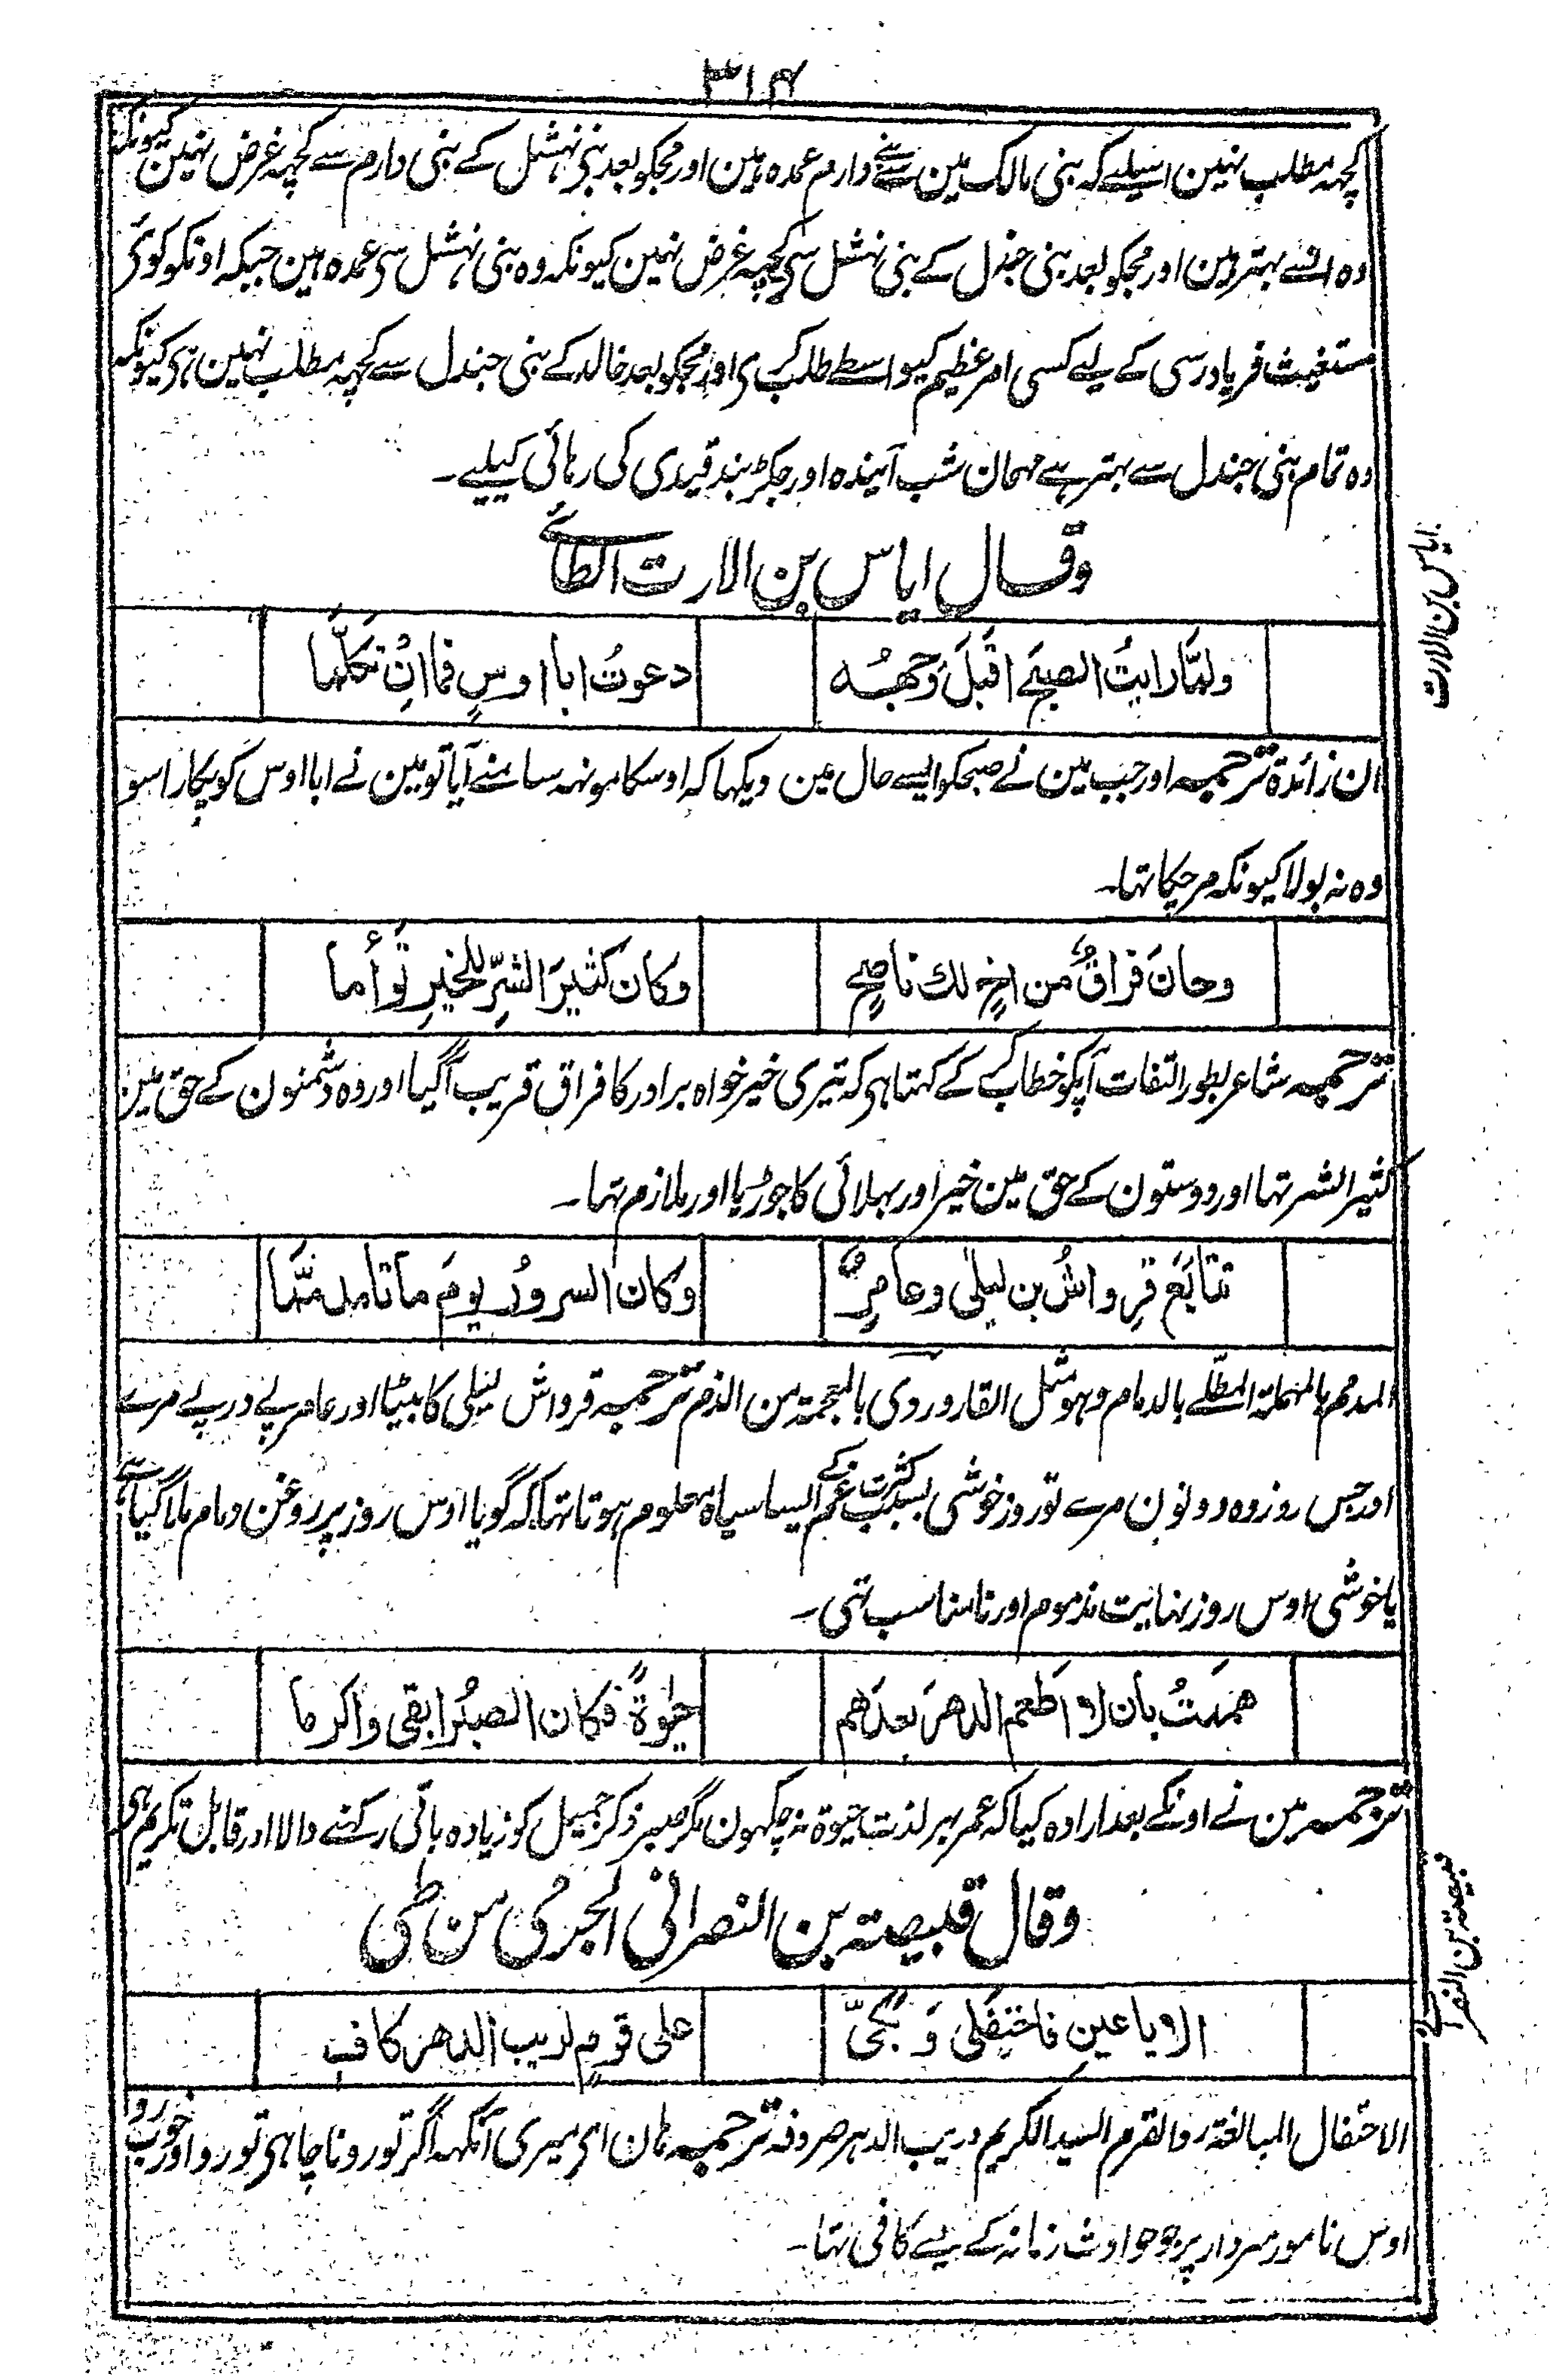 ۳۱۴
کچہہ مطلب نہین اسلیے کہ بنی مالک مین سے دارم عمدہ ہین اور مجکو بعد بنی نہشل کے بنی دارم سے کچہہ غرض نہین کیونکہ
وہ اونسے بہتر ہین اور مجکو بعد بنی جندل کے بنی نہشل سی کچہہ غرض نہین کیونکہ وہ بنی نہشل سی عمدہ ہین جبکہ اونکو کوئی
مستغیث فریاد رسی کے لیے کسی امر عظیم کیواسطے طلب کری اور مجکو بعد خالد کے بنی جندل سے کچہہ مطلب نہین ہی کیونکہ
وہ تمام بنی جندل سے بہتر ہے مہمان شب آیندہ اور جکڑبند قیدی کی رہائی کیلیے۔
وقال ایاس بن الارت الطائے
ایاس بن الارت
ولمّا رایتُ الصبحَ اقبلَ وَجهُه دعوتُ ابا اوسٍ فما انْ تکلّما
ان زائدۃ ترجمہ اور جب مین نے صبحکو ایسے حال مین دیکہا کہ اوسکا مونہہ سامنے آیا تو مین نے ابا اوس کو پکارا سو
وہ نہ بولا کیونکہ مرچکا تہا۔
وحانَ فراقٌ من اخٍ لك ناصحٍ وکان کثیرَ الشرِّ للخیرِ تَوأما
ترجمہ شاعر بطور التفات آپکو خطاب کرکے کہتا ہی کہ تیری خیر خواہ برادر کا فراق قریب آگیا اور وہ دشمنون کے حق مین
کثیر الشر تہا اور دوستون کے حق مین خیر اور بہلائی کا جوڑیا اور ملازم تہا۔
تتابَع قِرواشُ بن لیلٰی وعامِرٌ وکان السرورُ یومَ ماتا مدمّما
المدمم بالمہملۃ المطلے بالدمام وہو مثل القار وروی بالمعجمۃ من الذم ترجمہ قرواش لیلی کا بیٹا اور عامر پے درپے مرے
اور جس روز وہ دونون مرے تو روز خوشی بسبب کثرت غم کے ایسا سیاہ معلوم ہوتا تہا کہ گویا اوس روز پر روغن دمام ملا گیا ہے
یا خوشی اوس روز نہایت مذموم اور نامناسب تہی۔
هممتُ بان لا اَطعم الدهرَ بعدَهم حیٰوۃً فکان الصبرُ ابقی واکرما
ترجمہ مین نے اونکے بعد ارادہ کیا کہ عمر بہر لذت حیوۃ نہ چکہون مگر صبر ذکر جمیل کو زیادہ باقی رکہنے والا اور قابل تکریم ہی
وقال قبیصۃ بن النصرانی الجرمی من طی
قبیصۃ بن النصرانے
الا یا عین فاحتفلی وَبکّی علی قرمٍ لریب الدهر کاف
الاحتفال المبالغۃ والقرم السید الکریم وریب الدہر صروفہ ترجمہ ہان ای میری آنکہہ اگر تو رونا چاہی تو رو اور خوب رو
اوس نامور سردار پر جو حوادث زمانہ کے لیے کافی تہا۔